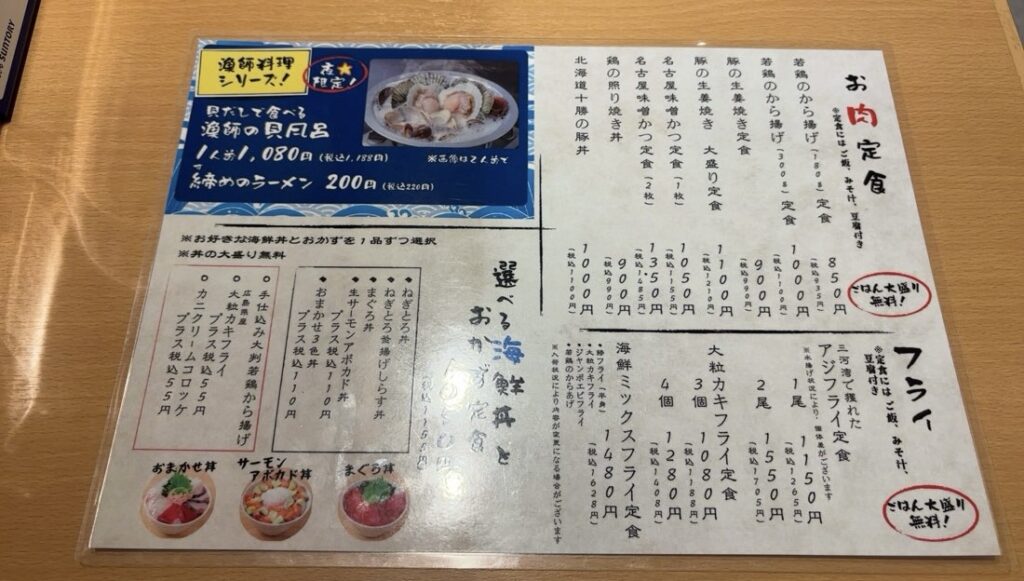 SUNTORY
漁師料理
シリーズ!
夜★
限定!
貝だしで食べる
漁師の貝風呂
1人前1,080円(税込1,188円)
※画像は2人前です
締めのラーメン 200円(税込220円)
お肉定食
※定食にはご飯、みそ汁、豆腐付き
ごはん大盛り
無料!
若鶏のから揚げ(180g)定食 850円
(税込935円)
若鶏のから揚げ(300g)定食 1000円
(税込1100円)
豚の生姜焼き定食 900円
(税込990円)
豚の生姜焼き 大盛り定食 1100円
(税込1210円)
名古屋味噌かつ定食(1枚) 1050円
(税込1155円)
名古屋味噌かつ定食(2枚) 1350円
(税込1485円)
鶏の照り焼き丼 900円
(税込990円)
北海道十勝の豚丼 1000円
(税込1100円)
フライ
※定食にはご飯、みそ汁、
豆腐付き
ごはん大盛り
無料!
三河湾で獲れた
アジフライ定食
※水揚げ状況により、個体差がございます
1尾 1150円
(税込1265円)
2尾 1550円
(税込1705円)
大粒カキフライ定食
3個 1080円
(税込1188円)
4個 1280円
(税込1408円)
海鮮ミックスフライ定食
1480円
(税込1628円)
・大粒カキフライ
・ジャンボエビフライ
・若鶏のからあげ
※入荷状況により内容が変更になる場合がございます
※お好きな海鮮丼とおかずを1品ずつ選択
※丼の大盛り無料
選べる海鮮丼と
おかず定食
(税込1155円)
◆ねぎとろ丼
◆ねぎとろ釜揚げしらす丼
◆まぐろ丼
◆生サーモンアボカド丼
プラス税込110円
◆おまかせ3色丼
プラス税込110円
○手仕込み大判若鶏から揚げ
○広島県産
大粒カキフライ
プラス税込55円
○カニクリームコロッケ
プラス税込55円
おまかせ丼
サーモン
アボカド丼
まぐろ丼